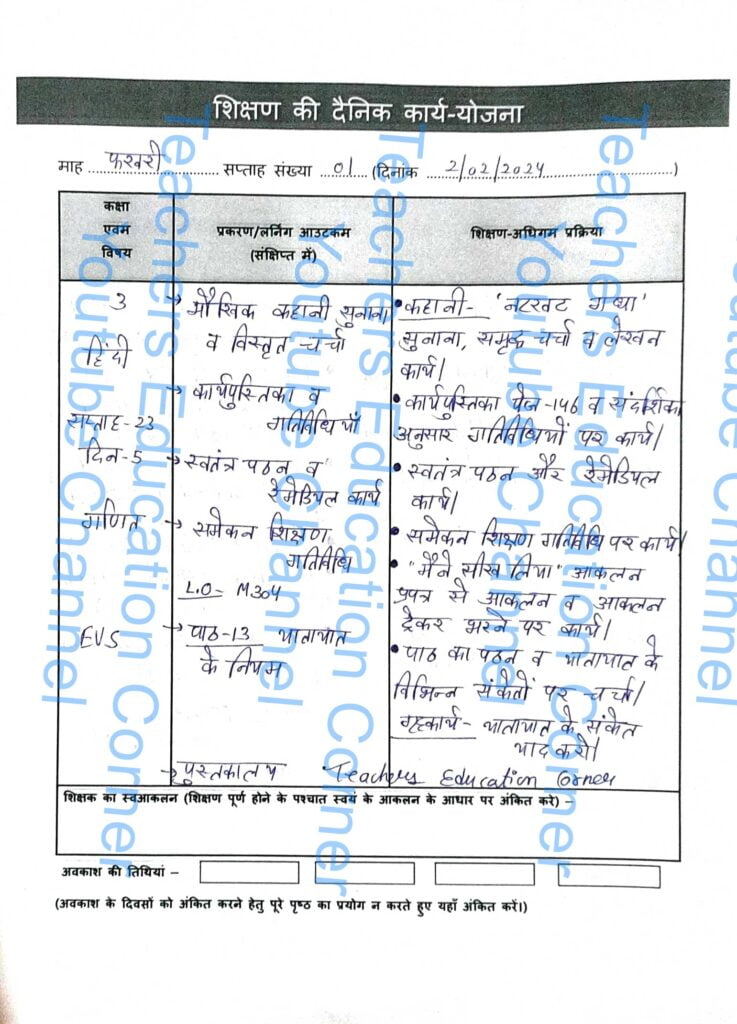 शिक्षण की दैनिक कार्य-योजना
माह फरवरी सप्ताह संख्या 01 (दिनांक 2/02/2024)
कक्षा एवम विषय
प्रकरण/लर्निंग आउटकम (संक्षिप्त में)
शिक्षण-अधिगम प्रक्रिया
3
हिंदी
सप्ताह-23
दिन-5
गणित
EVS
→ मौखिक कहानी सुनाना
व विस्तृत चर्चा
→ कार्यपुस्तिका व
गतिविधियाँ
→ स्वतंत्र पठन व
रेमेडियल कार्य
→ समेकन शिक्षण
गतिविधि
L.O- M304
→ पाठ-13 यातायात
के नियम
→ पुस्तकालय
• कहानी- 'नटखट गप्पा'
सुनाना, समृद्ध चर्चा व लेखन
कार्य।
• कार्यपुस्तिका पेज-146 व संदर्शिका
अनुसार गतिविधियों पर कार्य।
• स्वतंत्र पठन और रेमेडियल
कार्य।
• समेकन शिक्षण गतिविधि पर कार्य।
• "मैंने सीख लिया" आकलन
प्रपत्र से आकलन व आकलन
ट्रेकर भरने पर कार्य।
• पाठ का पठन व यातायात के
विभिन्न संकेतों पर चर्चा।
गृहकार्य- यातायात के संकेत
याद करो।
Teachers Education Corner
शिक्षक का स्वआकलन (शिक्षण पूर्ण होने के पश्चात स्वयं के आकलन के आधार पर अंकित करे) –
अवकाश की तिथियां –
(अवकाश के दिवसों को अंकित करने हेतु पूरे पृष्ठ का प्रयोग न करते हुए यहाँ अंकित करें।)
Teachers Education Corner
Youtube Channel
Teachers Education Corner
Youtube Channel
Teachers Education Corner
Youtube Channel